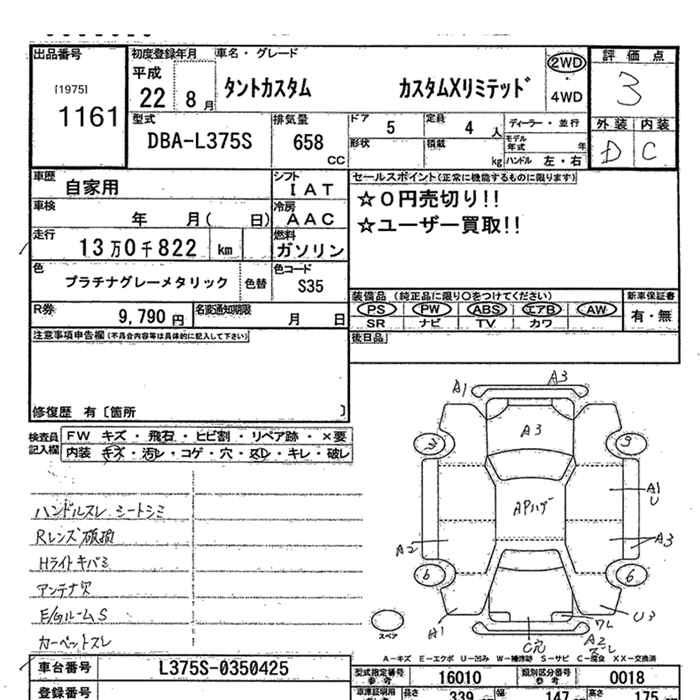 出品番号
[1975]
1161
初度登録年月
平成
22 8月
車名・グレード
タントカスタム カスタムXリミテッド
2WD
4WD
評価点
3
外装 内装
D C
型式
DBA-L375S
排気量
658
CC
ドア
5
定員
4 人
形状
積載
kg
ディーラー・並行
モデル年式 年
ハンドル 左・右
車歴
自家用
シフト
IAT
車検
年 月( 日)
冷房
AAC
走行
13万0千822 km
燃料
ガソリン
色
プラチナグレーメタリック
色替
色コード
S35
R券
9,790 円
名変通知期限
月 日
セールスポイント(正常に機能するものに限ります)
☆0円売切り!!
☆ユーザー買取!!
装備品 (純正品に限り○をつけてください)
PS PW ABS エアB AW
SR ナビ TV カワ
新車保証書
有・無
後日品
注意事項申告欄(不具合内容等は具体的に記入して下さい)
修復歴 有〔箇所 〕
検査員記入欄
FW キズ・飛石・ヒビ割・リペア跡・×要
内装 キズ・汚レ・コゲ・穴・スレ・キレ・破レ
ハンドルスレ シートシミ
Rレンズ破損
Hライトキバミ
アンテナ欠
E/GルームS
カーペットスレ
A1
A3
A3
3
3
APハゲ
A1
U
A2
A3
6
6
A1
C穴
ワレ
A2
スレ
U3
スペア
A-キズ E-エクボ U-凹み W-補修跡 S-サビ C-腐食 XX-交換済
車台番号
L375S-0350425
登録番号
型式指定番号
参考
16010
類別区分番号
参考
0018
車庫証明用
長さ
339
幅
147
高さ
175